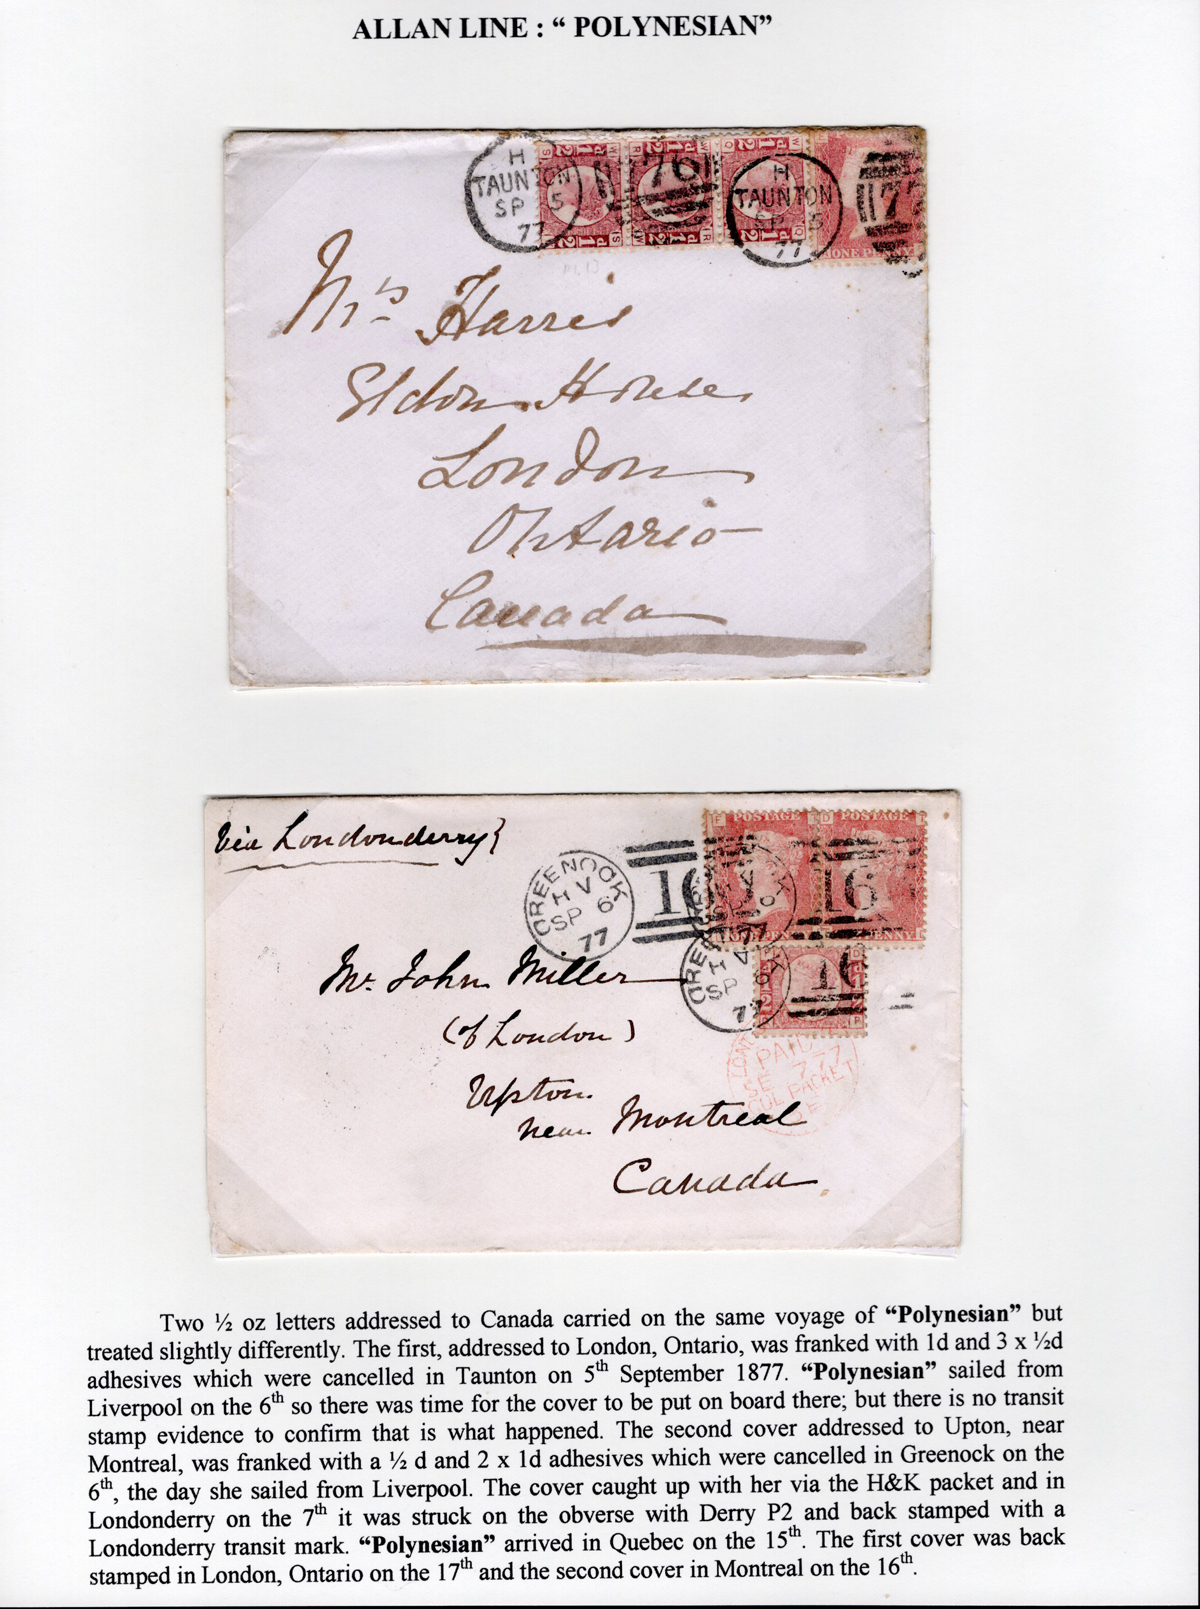 ALLAN LINE : “ POLYNESIAN”
H
TAUNTON
SP 5
77
76
H
TAUNTON
SP 5
77
77
ONE PENNY
Mrs Harris
Eldon House
London
Ontario
Canada
Via Londonderry
GREENOCK
H V
SP 6
77
16
POSTAGE
POSTAGE
16
GREENOCK
H V
SP 6
77
16
PAID
SE 7 77
COL PACKET
Mr. John Miller
(of London)
Upton
near Montreal
Canada
Two ½ oz letters addressed to Canada carried on the same voyage of “Polynesian” but
treated slightly differently. The first, addressed to London, Ontario, was franked with 1d and 3 x ½d
adhesives which were cancelled in Taunton on 5th September 1877. “Polynesian” sailed from
Liverpool on the 6th so there was time for the cover to be put on board there; but there is no transit
stamp evidence to confirm that is what happened. The second cover addressed to Upton, near
Montreal, was franked with a ½ d and 2 x 1d adhesives which were cancelled in Greenock on the
6th, the day she sailed from Liverpool. The cover caught up with her via the H&K packet and in
Londonderry on the 7th it was struck on the obverse with Derry P2 and back stamped with a
Londonderry transit mark. “Polynesian” arrived in Quebec on the 15th. The first cover was back
stamped in London, Ontario on the 17th and the second cover in Montreal on the 16th.